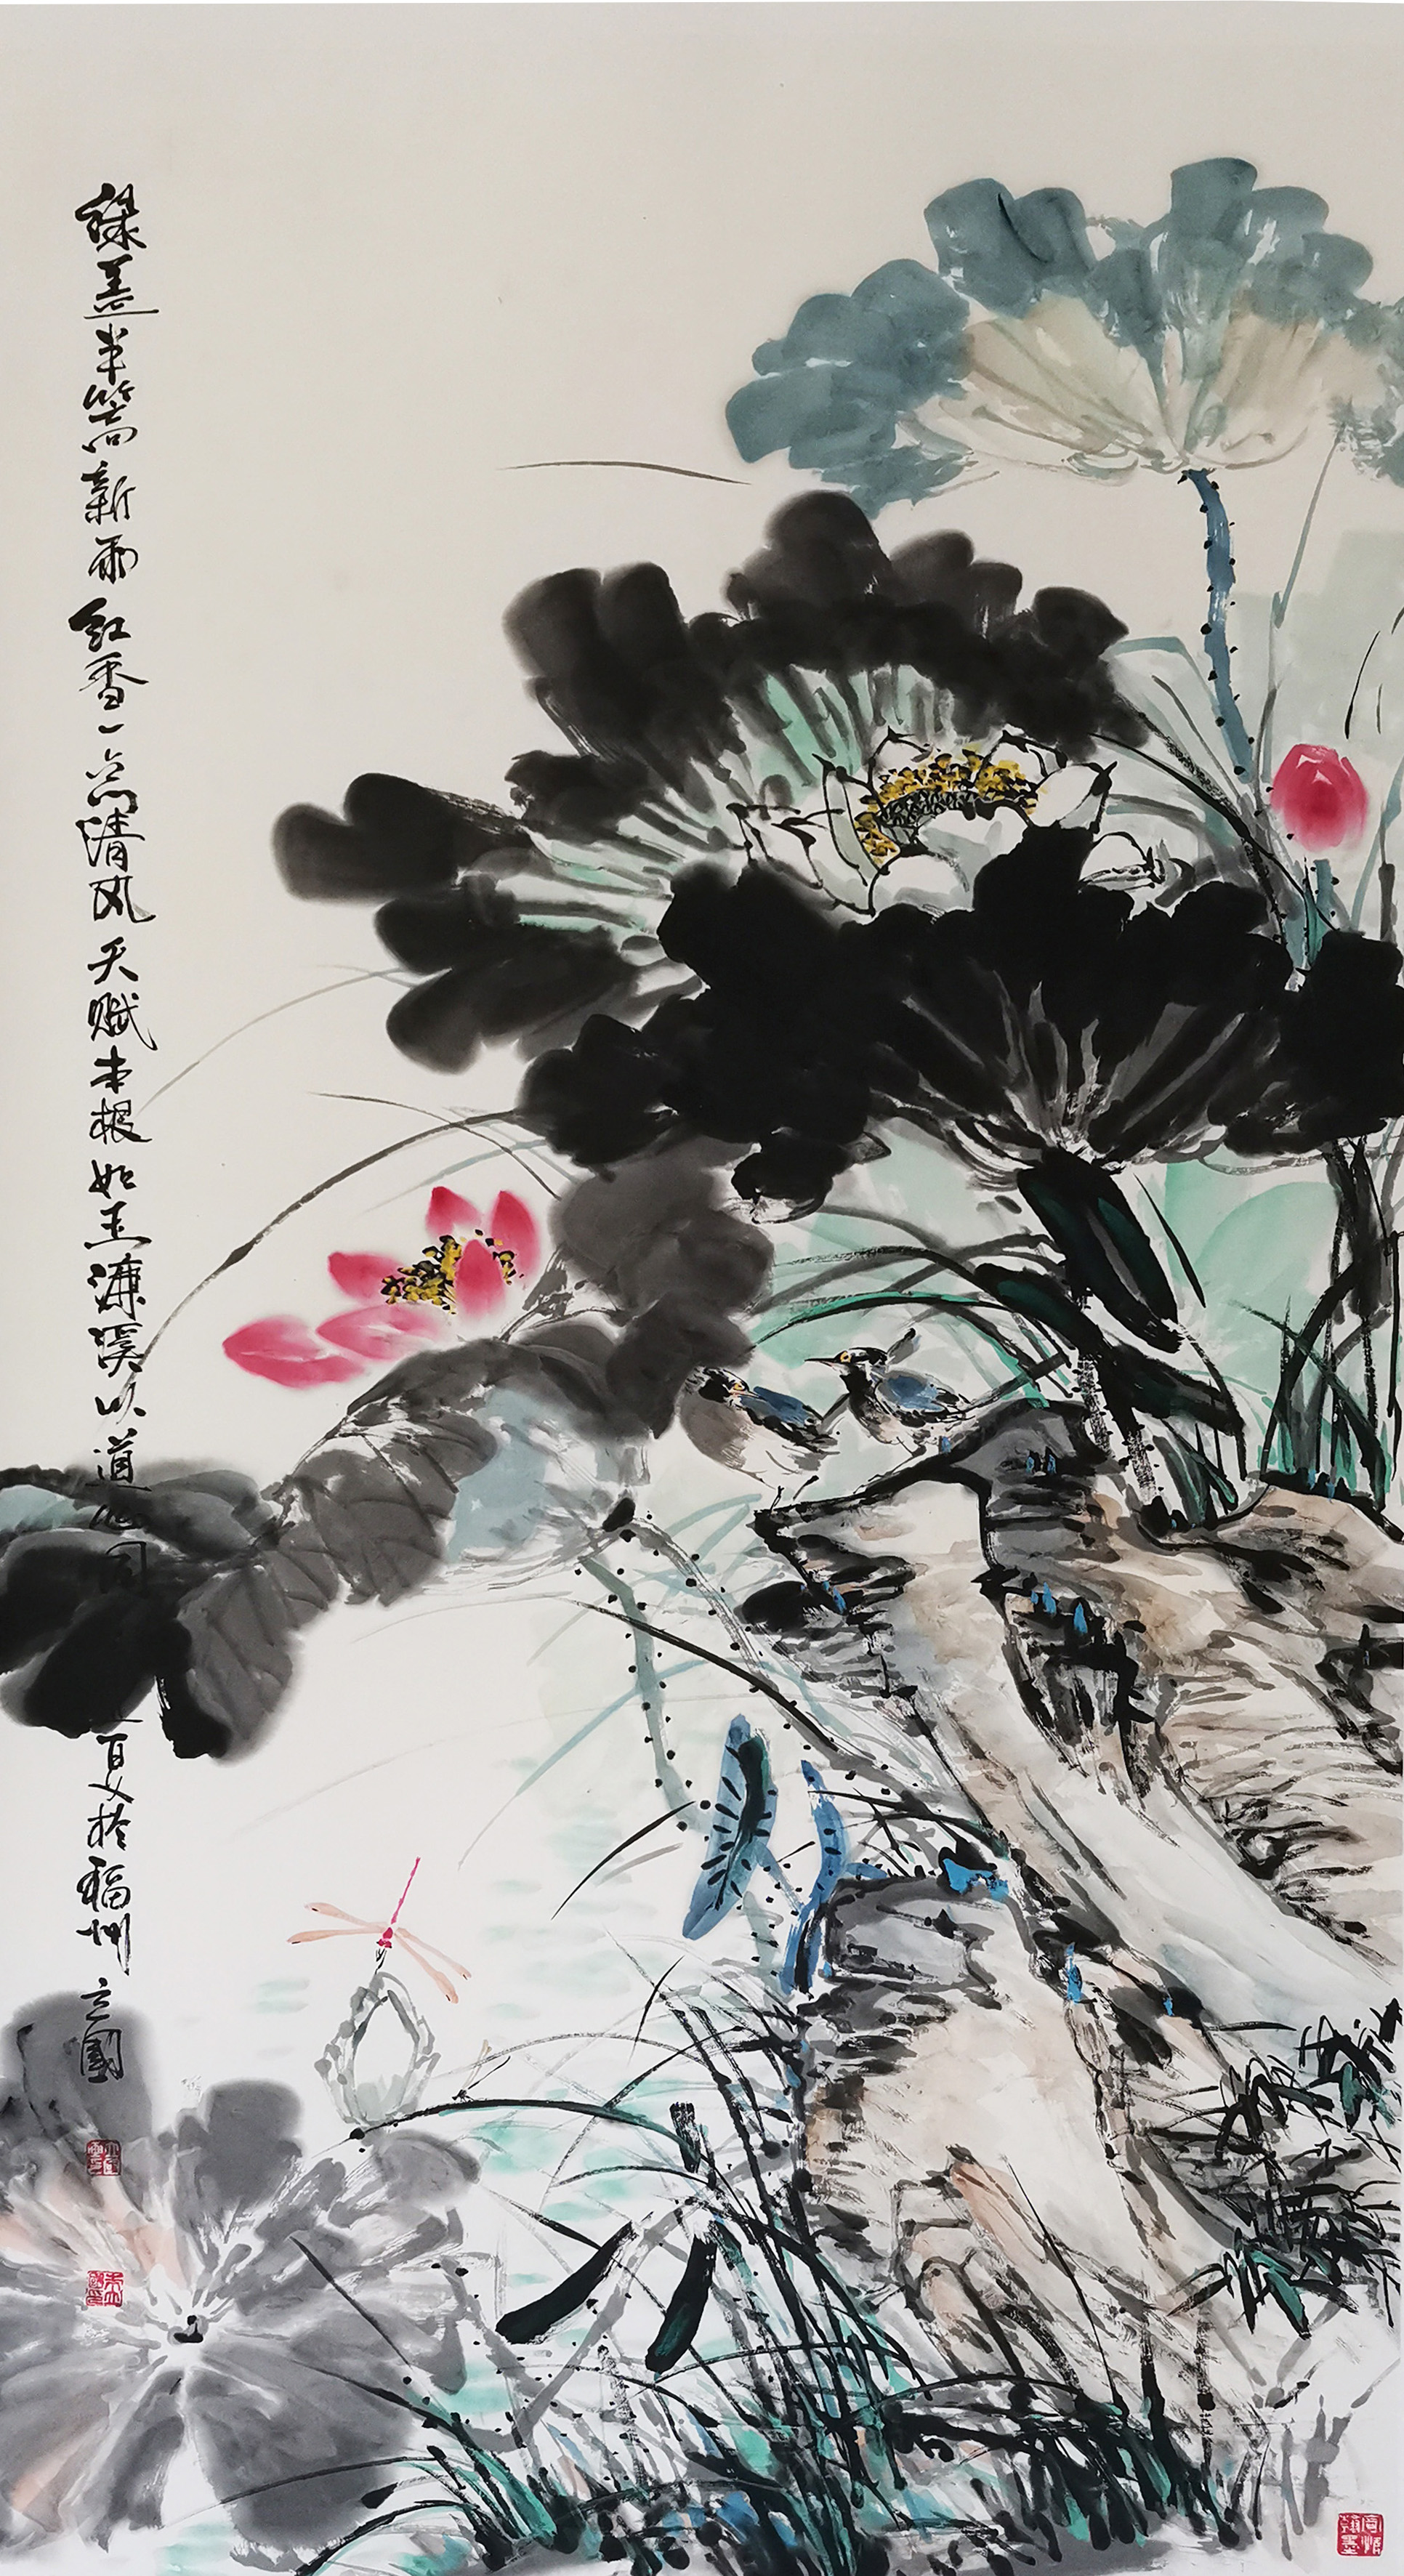 绿盖半篙新雨红香一点清风天赋本根如玉濂溪以道心同夏於福州立國